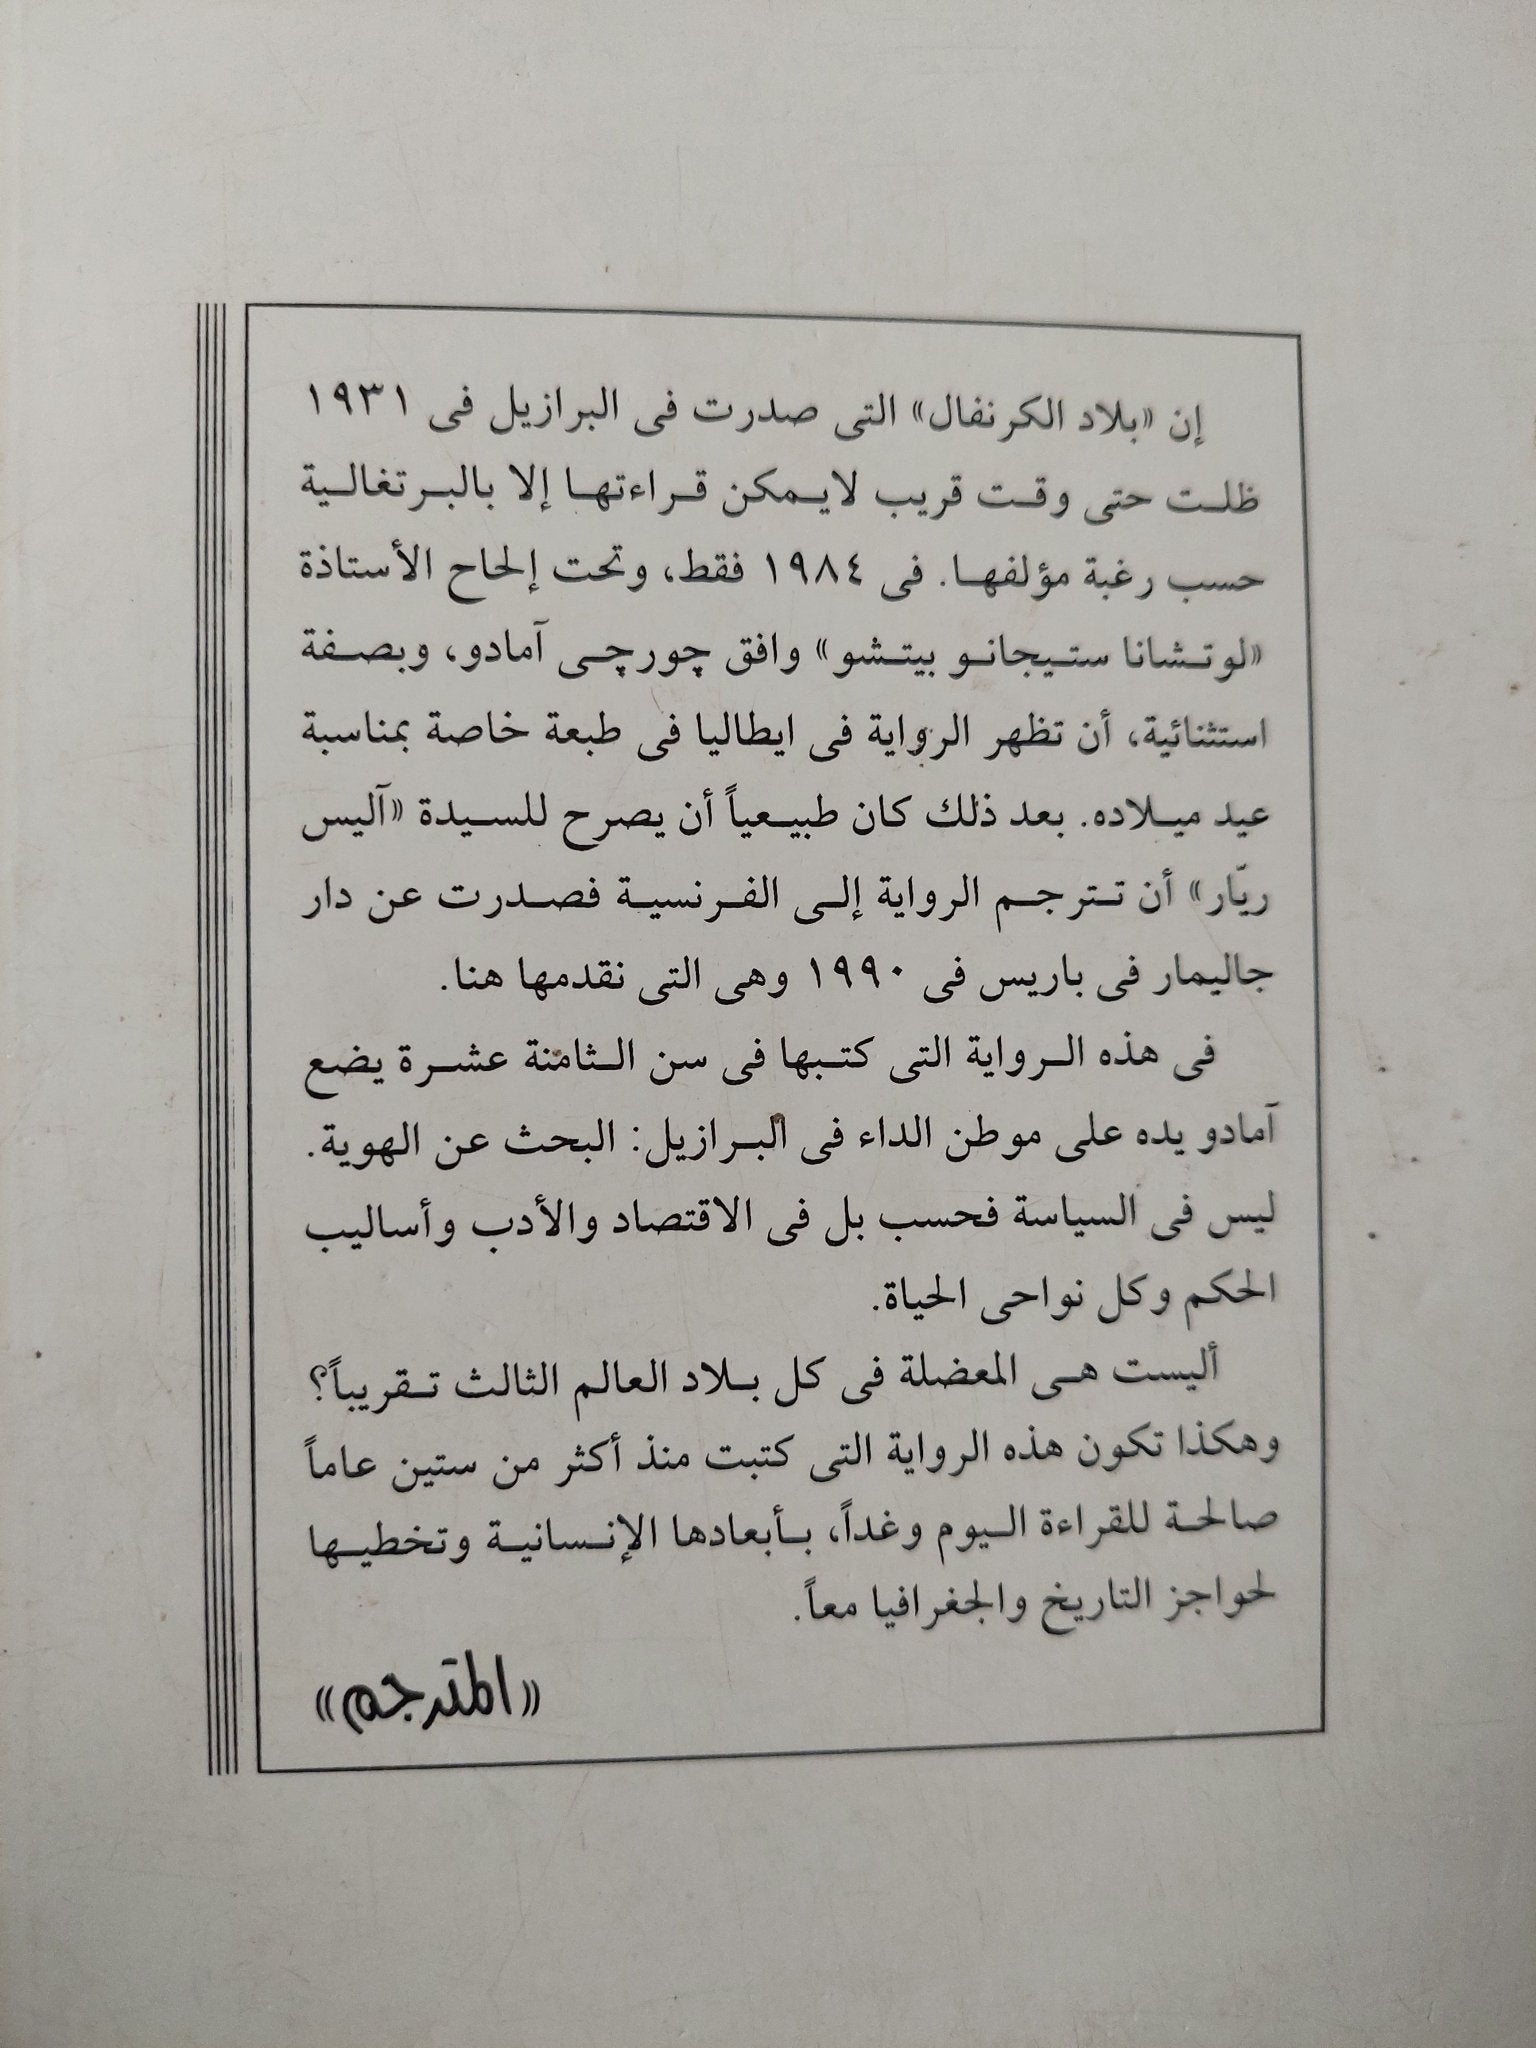 إن «بلاد الكرنفال» التى صدرت فى البرازيل فى ١٩٣١
ظلت حتى وقت قريب لايمكن قراءتها إلا بالبرتغالية
حسب رغبة مؤلفها. فى ١٩٨٤ فقط، وتحت إلحاح الأستاذة
«لوتشانا ستيجانو بيتشو» وافق چورچى آمادو، وبصفة
استثنائية، أن تظهر الرواية فى ايطاليا فى طبعة خاصة بمناسبة
عيد ميلاده. بعد ذلك كان طبيعياً أن يصرح للسيدة «آليس
ريّار» أن تترجم الرواية إلى الفرنسية فصدرت عن دار
جاليمار فى باريس فى ١٩٩٠ وهى التى نقدمها هنا.
فى هذه الرواية التى كتبها فى سن الثامنة عشرة يضع
آمادو يده على موطن الداء فى البرازيل: البحث عن الهوية.
ليس فى السياسة فحسب بل فى الاقتصاد والأدب وأساليب
الحكم وكل نواحى الحياة.
أليست هى المعضلة فى كل بلاد العالم الثالث تقريباً؟
وهكذا تكون هذه الرواية التى كتبت منذ أكثر من ستين عاماً
صالحة للقراءة اليوم وغداً، بأبعادها الإنسانية وتخطيها
لحواجز التاريخ والجغرافيا معاً.
«المترجم»